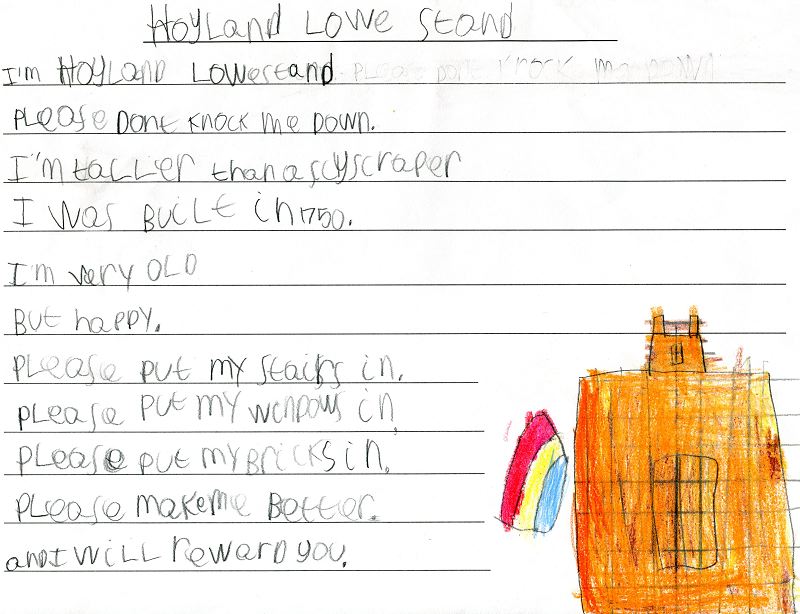 Hoyland Lowe Stand
I'm Hoyland Lowestand please dont knock me down
please Dont knock me Down.
I'm taller than a scyscraper
I was Built in 1750.
I'm very OLD
But happy.
please put my stairs in.
please put my winDows in,
please put my Bricks in.
please make me Better.
and I will reward you.